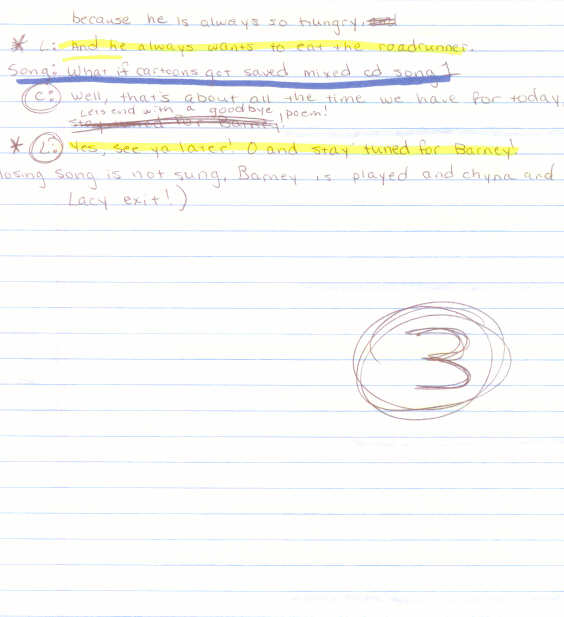 because he is always so hungry. and
* L: And he always wants to eat the roadrunner.
Song: What if cartoons got saved mixed cd song 1
C: Well, that's about all the time we have for today.
Lets end with a goodbye poem!
stay tuned for Barney!
* L: Yes, see ya later! O and stay tuned for Barney!
losing song is not sung, Barney is played and chyna and
Lacy exit!)
3